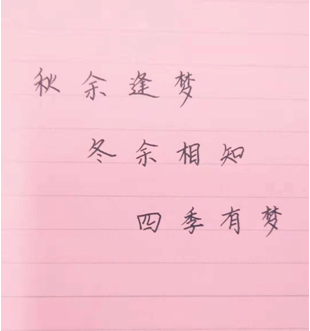 秋余逢梦
冬余相知
四季有梦